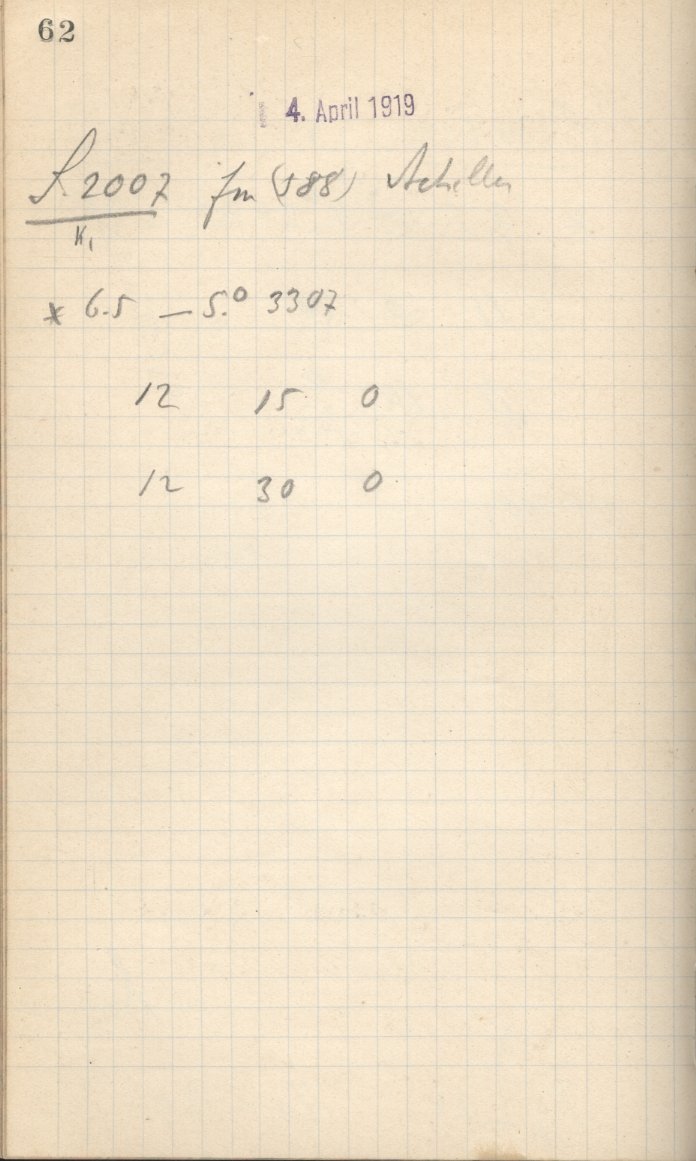 62
4. April 1919
S. 2007 für (588) Achilles
K1
* 6.5 — 5.° 3307
12 15 0
12 30 0